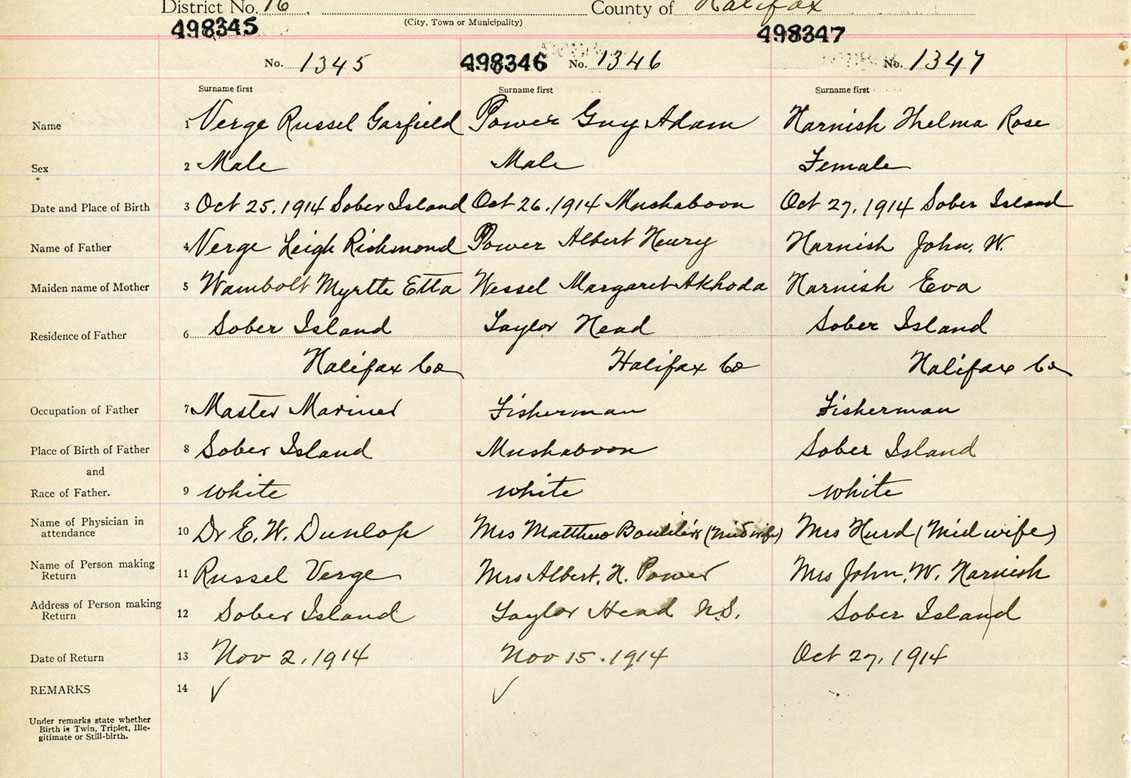 District No. 16 County of Halifax
(City, Town or Municipality)
498345 498346 498347
No. 1345 No. 1346 No. 1347
Surname first Surname first Surname first
Name 1 Verge Russel Garfield Power Guy Adam Harnish Thelma Rose
Sex 2 Male Male Female
Date and Place of Birth 3 Oct 25, 1914 Sober Island Oct 26, 1914 Mushaboon Oct 27, 1914 Sober Island
Name of Father 4 Verge Leigh Richmond Power Albert Henry Harnish John. W.
Maiden name of Mother 5 Wambolt Myrtle Etta Wessel Margaret Akhoda Harnish Eva
Residence of Father 6 Sober Island Taylor Head Sober Island
Halifax Co Halifax Co Halifax Co
Occupation of Father 7 Master Mariner Fisherman Fisherman
Place of Birth of Father 8 Sober Island Mushaboon Sober Island
and
Race of Father. 9 white white white
Name of Physician in attendance 10 Dr E. W. Dunlop Mrs Matthew (Midwife) Mrs Hurd (Midwife)
Name of Person making Return 11 Russel Verge Mrs Albert. H. Power Mrs John. W. Harnish
Address of Person making Return 12 Sober Island Taylor Head N.S. Sober Island
Date of Return 13 Nov 2, 1914 Nov 15. 1914 Oct 27, 1914
REMARKS 14 ✓ ✓
Under remarks state whether
Birth is Twin, Triplet, Ille-
gitimate or Still-birth.